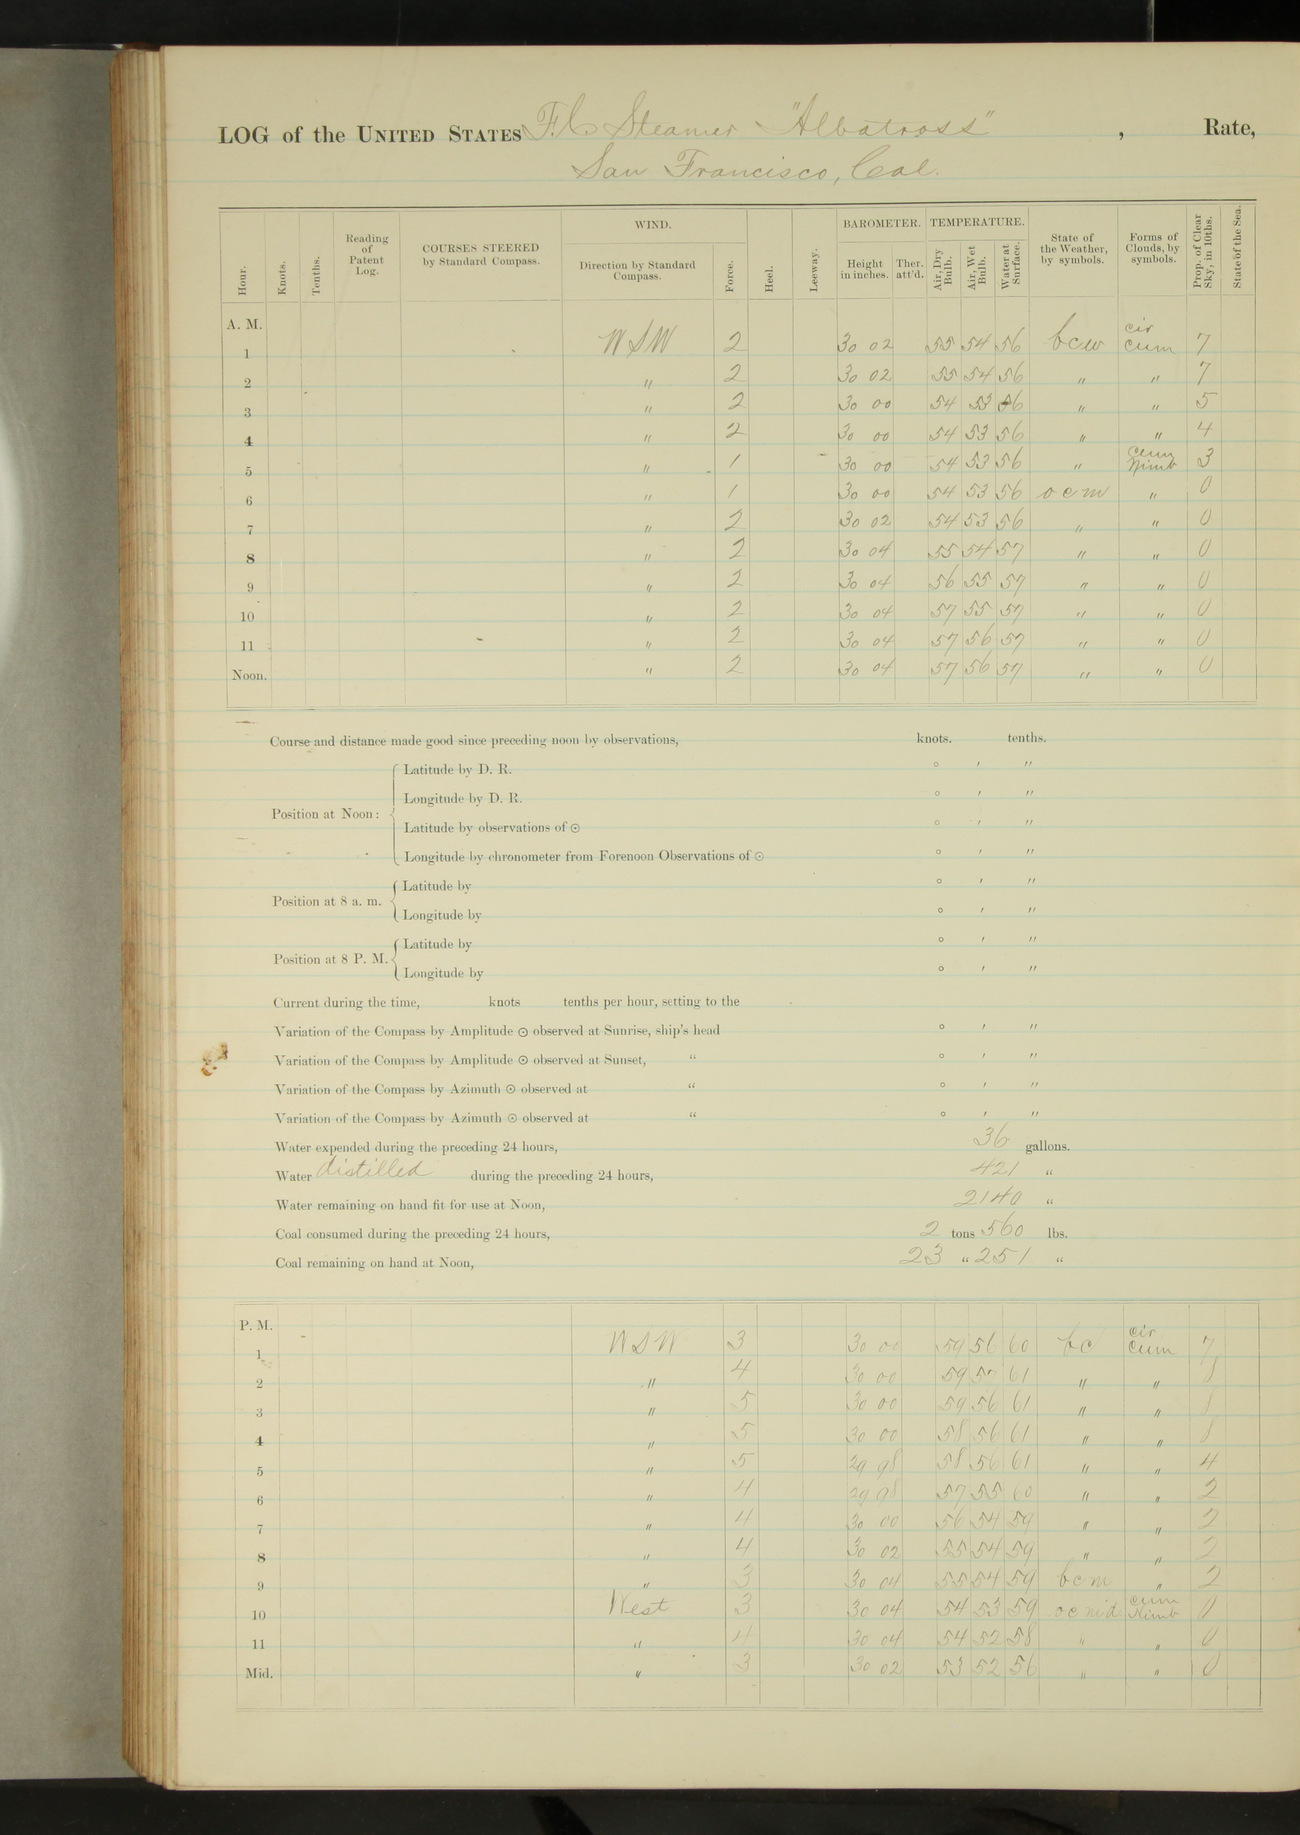 LOG of the UNITED STATES F.C. Steamer "Albatross", Rate,
San Francisco, Cal.
Hour. Knots. Tenths. Reading of Patent Log. COURSES STEERED by Standard Compass. WIND. Direction by Standard Compass. Force. Heel. Leeway. BAROMETER. Height in inches. Ther. att'd. TEMPERATURE. Air, Dry Bulb. Air, Wet Bulb. Water at Surface. State of the Weather, by symbols. Forms of Clouds, by symbols. Prop. of Clear Sky, in 10ths. State of the Sea.
A. M.
1 WSW 2 30 02 55 54 56 bcw cir cum 7
2 " 2 30 02 55 54 56 " " 7
3 " 2 30 00 54 53 56 " " 5
4 " 2 30 00 54 53 56 " " 4
5 " 1 30 00 54 53 56 " cum Nimb 3
6 " 1 30 00 54 53 56 ocm " 0
7 " 2 30 02 54 53 56 " " 0
8 " 2 30 04 55 54 57 " " 0
9 " 2 30 04 56 55 57 " " 0
10 " 2 30 04 57 55 57 " " 0
11 " 2 30 04 57 56 57 " " 0
Noon. " 2 30 04 57 56 57 " " 0
Course and distance made good since preceding noon by observations, knots. tenths.
Position at Noon: Latitude by D. R. ° ′ ″
Longitude by D. R. ° ′ ″
Latitude by observations of ☉ ° ′ ″
Longitude by chronometer from Forenoon Observations of ☉ ° ′ ″
Position at 8 a. m. Latitude by ° ′ ″
Longitude by ° ′ ″
Position at 8 P. M. Latitude by ° ′ ″
Longitude by ° ′ ″
Current during the time, knots tenths per hour, setting to the
Variation of the Compass by Amplitude ☉ observed at Sunrise, ship's head ° ′ ″
Variation of the Compass by Amplitude ☉ observed at Sunset, " ° ′ ″
Variation of the Compass by Azimuth ☉ observed at " ° ′ ″
Variation of the Compass by Azimuth ☉ observed at " ° ′ ″
Water expended during the preceding 24 hours, 36 gallons.
Water distilled during the preceding 24 hours, 421 "
Water remaining on hand fit for use at Noon, 2140 "
Coal consumed during the preceding 24 hours, 2 tons 560 lbs.
Coal remaining on hand at Noon, 23 " 251 "
P. M.
1 WSW 3 30 00 59 56 60 bc cir cum 7
2 " 4 30 00 59 57 61 " " 8
3 " 5 30 00 59 56 61 " " 8
4 " 5 30 00 58 56 61 " " 8
5 " 5 29 98 58 56 61 " " 4
6 " 4 29 98 57 55 60 " " 2
7 " 4 30 00 56 54 59 " " 2
8 " 4 30 02 55 54 59 " " 2
9 " 3 30 04 55 54 59 bcm " 2
10 West 3 30 04 54 53 59 ocmd cum Nimb 0
11 " 4 30 04 54 52 58 " " 0
Mid. " 3 30 02 53 52 56 " " 0